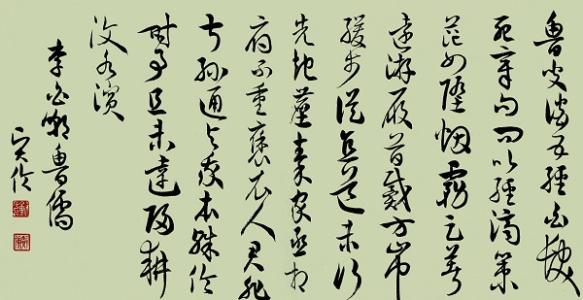 魯叟談五經白髮
死章句問以經濟策
茫如墜烟霧足著
遠游履首戴方山巾
緩步從直道未行
先起塵秦家丞相
府不重褒衣人君非
叔孫通與我本殊倫
時事且未達歸耕
汶水濱
李白嘲魯儒